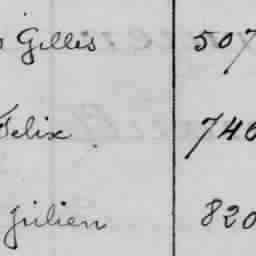 Gillis 507
Felix 746
Julien 820